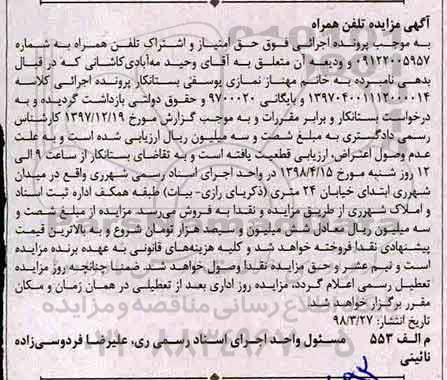 آگهی مزایده تلفن همراه
به موجب پرونده اجرائی فوق حق امتیاز و اشتراک تلفن همراه به شماره
۰۹۱۲۲۰۰۵۹۵۷ و ودیعه آن متعلق به آقای وحید مه‌آبادی‌کاشانی که در قبال
بدهی نامبرده به خانم مهناز نمازی یوسفی بستانکار پرونده اجرائی کلاسه
۱۳۹۷۰۴۰۰۱۱۱۲۰۰۰۰۱۴ و بایگانی ۹۷۰۰۰۲۰ و حقوق دولتی بازداشت گردیده و به
درخواست بستانکار و برابر مقررات و به موجب گزارش مورخ ۱۳۹۷/۱۲/۱۹ کارشناس
رسمی دادگستری به مبلغ شصت و سه میلیون ریال ارزیابی شده است و به علت
عدم وصول اعتراض، ارزیابی قطعیت یافته است و به تقاضای بستانکار از ساعت ۹ الی
۱۲ روز شنبه مورخ ۱۳۹۸/۴/۱۵ در واحد اجرای اسناد رسمی شهرری واقع در میدان
شهرری ابتدای خیابان ۲۴ متری (ذکریای رازی- بیات) طبقه همکف اداره ثبت اسناد
و املاک شهرری از طریق مزایده و نقدا به فروش می‌رسد. مزایده از مبلغ شصت و
سه میلیون ریال معادل شش میلیون و سیصد هزار تومان شروع و به بالاترین قیمت
پیشنهادی نقدا فروخته خواهد شد و کلیه هزینه‌های قانونی به عهده برنده مزایده
است و نیم عشر و حق مزایده نقدا وصول خواهد شد. ضمنا چنانچه روز مزایده
تعطیل رسمی اعلام گردد، مزایده روز اداری بعد از تعطیلی در همان زمان و مکان
مقرر برگزار خواهد شد.
تاریخ انتشار: ۹۸/۳/۲۷
م الف ۵۵۳ مسئول واحد اجرای اسناد رسمی ری، علیرضا فردوسی‌زاده
نائینی